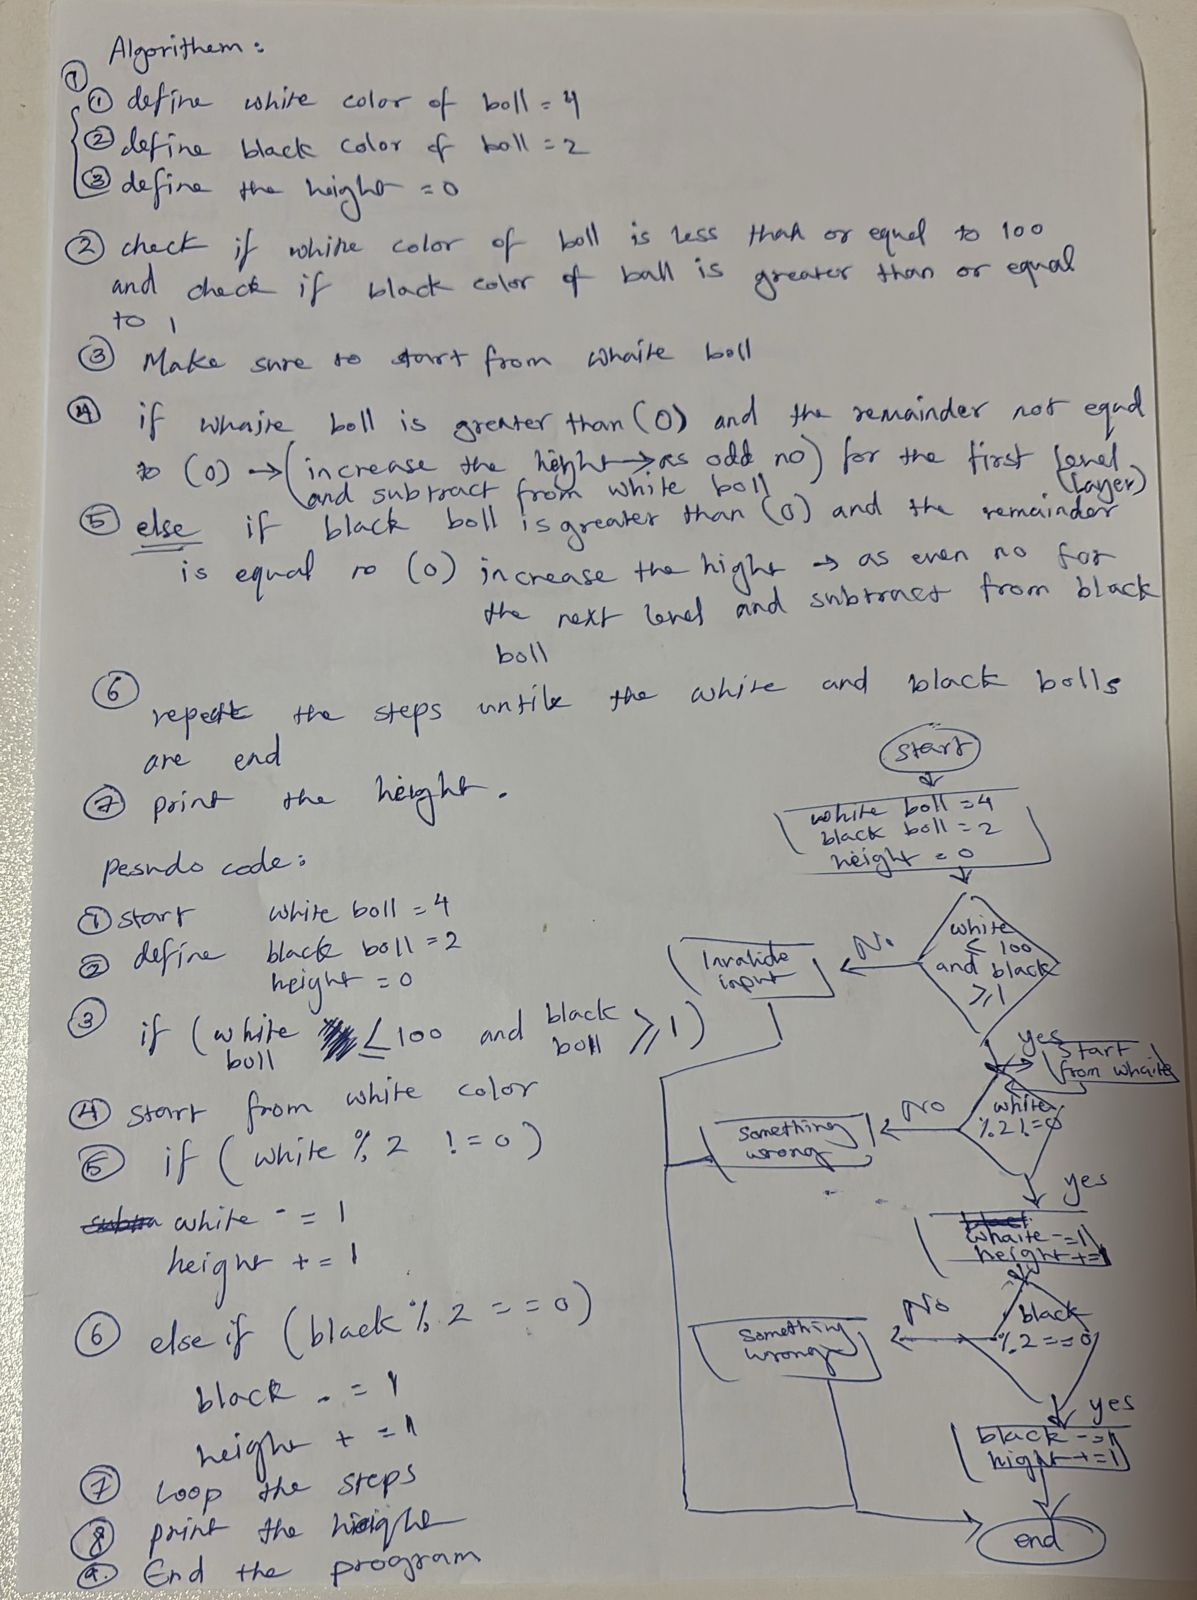 Algorithem :
①
① define white color of boll = 4
② define black color of boll = 2
③ define the height = 0
② check if white color of boll is less than or equal to 100
and check if black color of ball is greater than or equal
to 1
③ Make sure to start from whaite boll
④ if whaite boll is greater than (0) and the remainder not equal
to (0) → (increase the height → as odd no) for the first level
and subtract from white boll (Layer)
⑤ else if black boll is greater than (0) and the remainder
is equal to (0) increase the hight → as even no for
the next level and subtract from black
boll
⑥ repeat the steps untile the white and black bolls
are end
⑦ print the height .
Pesudo code :
① start white boll = 4
② define black boll = 2
height = 0
③ if (white ≤ 100 and black ≥ 1)
boll boll
④ start from white color
⑤ if ( white % 2 != 0 )
white - = 1
height + = 1
⑥ else if (black % 2 == 0)
black - = 1
height + = 1
⑦ Loop the steps
⑧ print the hieighe
9. End the program
start
white boll = 4
black boll = 2
height = 0
white
≤ 100
and black
≥ 1
No
Invalide
input
yes
start
from whaite
white
% 2 != 0
No
Something
wrong
yes
whaite -= 1
height += 1
black
% 2 == 0
No
Something
wrong
yes
black -= 1
hight += 1
end